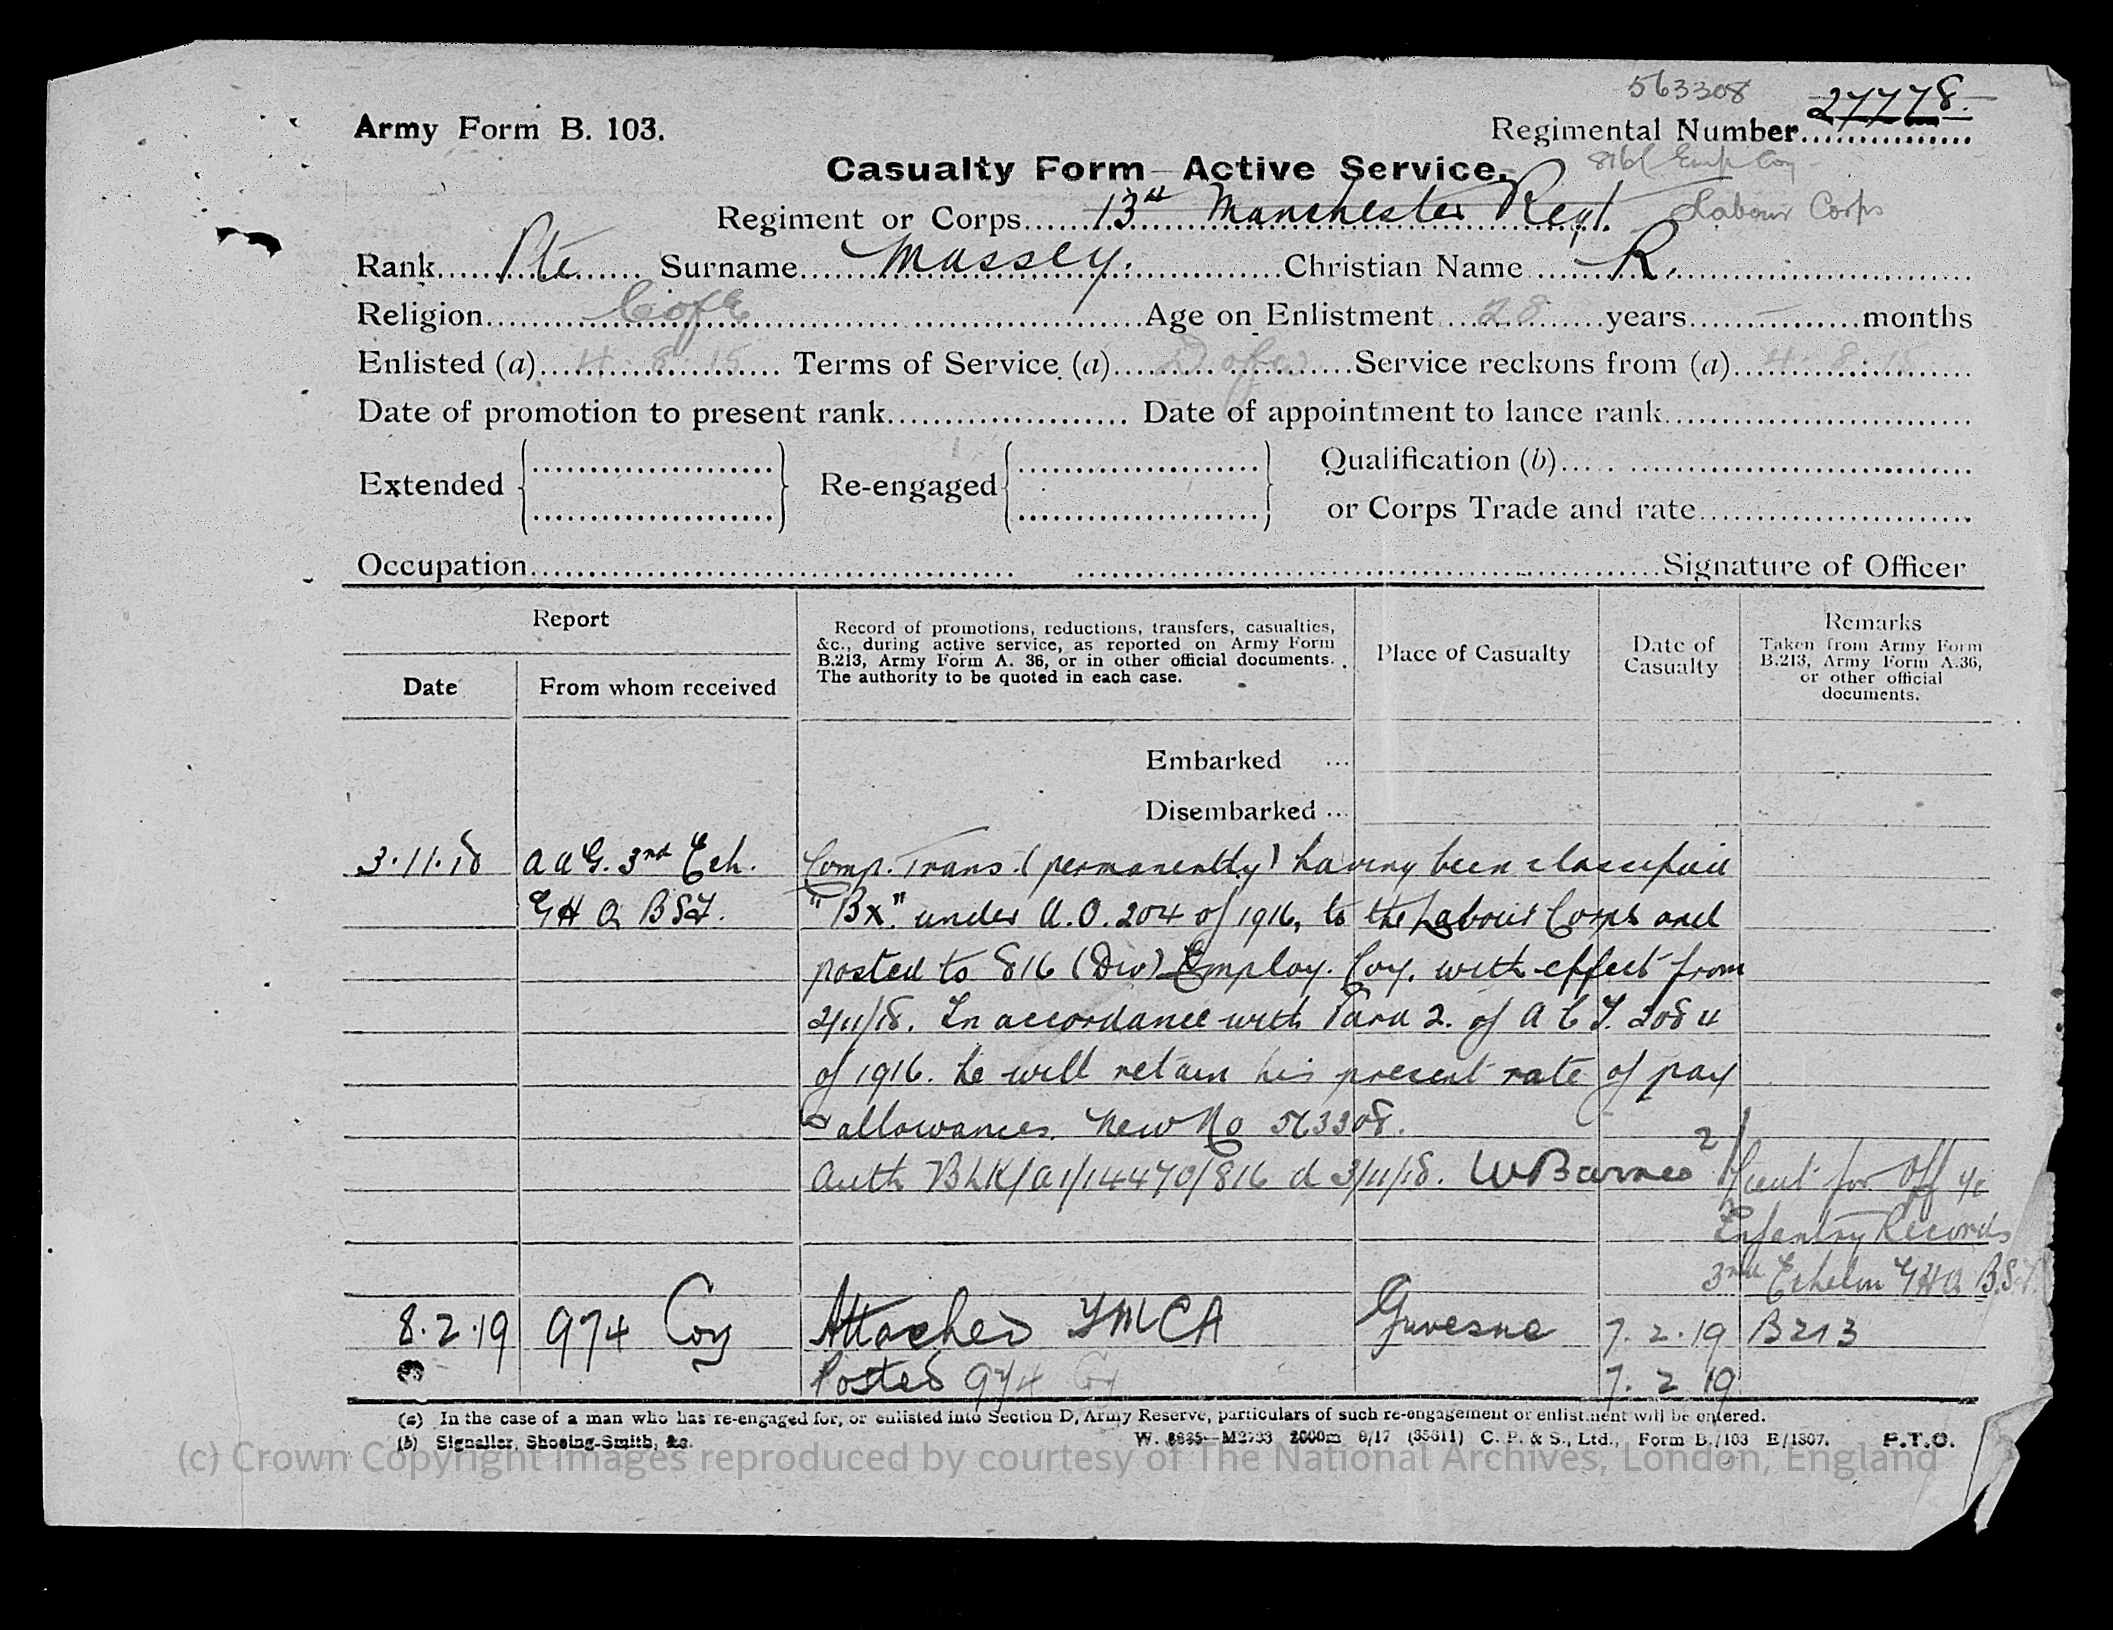 563308
27778.
Army Form B. 103.
Regimental Number
Casualty Form—Active Service.
816 Emp Coy
Regiment or Corps 13th Manchester Regt. Labour Corps
Rank Pte Surname Massey. Christian Name R.
Religion C of E Age on Enlistment 28 years — months
Enlisted (a) 4.8.15 Terms of Service (a) D of W Service reckons from (a) 4.8.15
Date of promotion to present rank Date of appointment to lance rank
Extended Re-engaged Qualification (b)
or Corps Trade and rate
Occupation Signature of Officer
Report
Date From whom received
Record of promotions, reductions, transfers, casualties,
&c., during active service, as reported on Army Form
B.213, Army Form A. 36, or in other official documents.
The authority to be quoted in each case.
Place of Casualty
Date of
Casualty
Remarks
Taken from Army Form
B.213, Army Form A.36,
or other official
documents.
Embarked ...
Disembarked ...
3.11.18 A A G. 3rd Ech. Comp. Trans. (permanently) having been classified
G H Q B S F. "Bx." under A.O. 204 of 1916, to the Labour Corps and
posted to 816 (Div) Employ. Coy. with effect from
2/11/18. In accordance with Para 2. of A C I. 2084
of 1916. he will retain his present rate of pay
& allowances. New No 563308.
Auth BLK/A1/14470/816 d 3/11/18. W Barnes 2/Lieut for Off i/c
Infantry Records
3rd Echelon G H Q B.S.F.
8.2.19 974 Coy Attached YMCA Guvesne 7.2.19 B213
Posted 974 Coy 7.2.19
(a) In the case of a man who has re-engaged for, or enlisted into Section D, Army Reserve, particulars of such re-engagement or enlistment will be entered.
(b) Signaller, Shoeing-Smith, &c. W. 8885—M2733 2000m 8/17 (35611) C. P. & S., Ltd., Form B./103 E/1807. P.T.O.
(c) Crown Copyright Images reproduced by courtesy of The National Archives, London, England